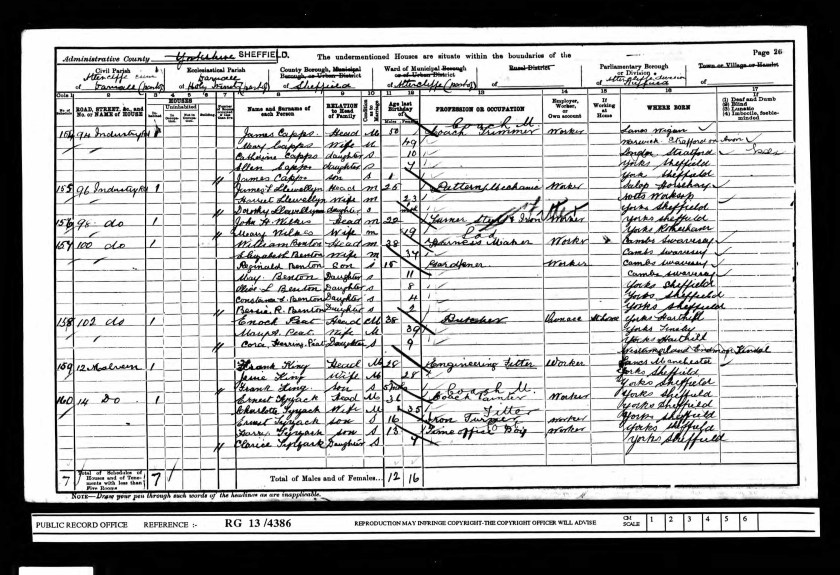 Administrative County Yorkshire SHEFFIELD. The undermentioned Houses are situate within the boundaries of the Page 26
Civil Parish of Darnall (part of)
Ecclesiastical Parish Darnall of Holy Trinity (part of)
County Borough, Municipal Borough, or Urban District of Sheffield
Ward of Municipal Borough or of Urban District of Attercliffe (part of)
Rural District of
Parliamentary Borough or Division of Sheffield
Town or Village or Hamlet of
Cols. 1 2 3 4 5 6 7 8 9 10 11 12 13 14 15 16 17
No. of ROAD, STREET, &c., and No. or NAME of HOUSE HOUSES Uninhabited Building Name and Surname of each Person RELATION to Head of Family Age last Birthday of PROFESSION OR OCCUPATION Employer, Worker, or Own account If Working at Home WHERE BORN If (1) Deaf and Dumb (2) Blind (3) Lunatic (4) Imbecile, feeble-minded
154 94 Industry Rd 1 James Capps Head M 50 Coach Trimmer Worker Lancs Wigan
Mary Capps Wife M 49 Warwick Stratford on Avon
Catherine Capps daughter S 10 London Stratford
Ellen Capps daughter S 7 Yorks Sheffield
James Capps son S 1 York Sheffield
155 96 Industry Rd 1 James T Llewellyn Head M 25 Pattern Mechanic Worker Salop Horsehay
Harriet Llewellyn Wife M 23 Notts Worksop
Dorothy Llewellyn daughter S Yorks Sheffield
156 98 do 1 John H Wilkes Head M 22 Turner Steel & Iron Worker Yorks Sheffield
Mary Wilkes Wife M 19 Yorks Rotherham
157 100 do 1 William Benton Head M 38 Harness Maker Worker Cambs Swavesey
Elizabeth Benton Wife M 37 Cambs Swavesey
Reginald Benton Son S 15 Gardener Worker Cambs Swavesey
May Benton Daughter S 11 Cambs Swavesey
Olive L Benton Daughter S 8 Yorks Sheffield
Constance L Benton Daughter S 4 Yorks Sheffield
Bessie R. Benton Daughter S 2 Yorks Sheffield
158 102 do 1 Enoch Peat Head M 38 Butcher At home Yorks Harthill
Mary A. Peat Wife M 39 Yorks Tinsley
Cora Herring Peat Daughter S 9 Yorks Harthill
Westmorland Kendal
159 12 Malvern 1 Frank King Head M 28 Engineering Fitter Worker Lancs Manchester
Jessie King Wife M 28 Yorks Sheffield
Frank King son S Yorks Sheffield
160 14 Do 1 Ernest Tyzack Head M 36 Coach Painter Worker Yorks Sheffield
Charlotte Tyzack Wife M 35 Yorks Sheffield
Ernest Tyzack son S 16 Iron Turner Worker Yorks Sheffield
Harry Tyzack son S 13 Time office Boy Worker Yorks Sheffield
Clarice Tyzack Daughter S 7 Yorks Sheffield
7 Total of Schedules of Houses and of Tenements with less than Five Rooms 7 Total of Males and of Females... 12 16
NOTE—Draw your pen through such words of the headings as are inapplicable.
PUBLIC RECORD OFFICE REFERENCE :- RG 13/4386 REPRODUCTION MAY INFRINGE COPYRIGHT-THE COPYRIGHT OFFICER WILL ADVISE CM SCALE 1 2 3 4 5 6